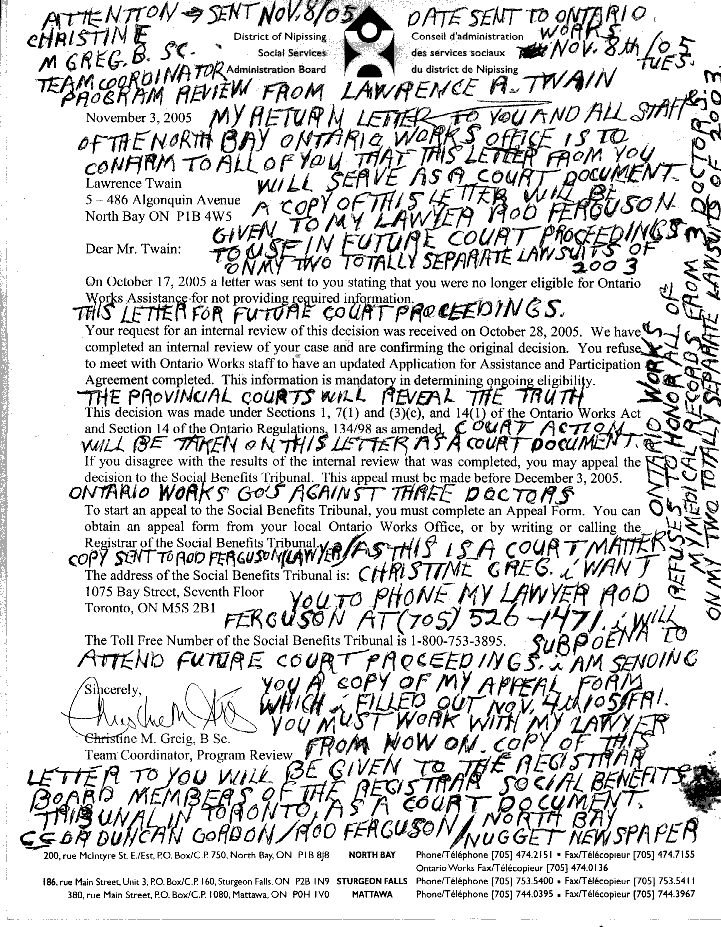 ATTENTION → SENT NOV. 8/05
CHRISTINE
M GREG. B. SC.
TEAM COORDINATOR
PROGRAM REVIEW FROM LAWRENCE R. TWAIN
District of Nipissing
Social Services
Administration Board
Conseil d'administration
des services sociaux
du district de Nipissing
DATE SENT TO ONTARIO
WORKS
NOV. 8th/05
TUES.
November 3, 2005
MY RETURN LETTER TO YOU AND ALL STAFF
OF THE NORTH BAY ONTARIO WORKS OFFICE IS TO
CONFARM TO ALL OF YOU THAT THIS LETTER FROM YOU
WILL SERVE AS A COURT DOCUMENT.
Lawrence Twain
5 – 486 Algonquin Avenue
North Bay ON P1B 4W5
A COPY OF THIS LETTER WILL BE
GIVEN TO MY LAWYER ROD FERGUSON
TO USE IN FUTURE COURT PROCEEDINGS
ON MY TWO TOTALLY SEPARATE LAWSUITS OF
2003
Dear Mr. Twain:
On October 17, 2005 a letter was sent to you stating that you were no longer eligible for Ontario
Works Assistance for not providing required information.
THIS LETTER FOR FUTURE COURT PROCEEDINGS.
Your request for an internal review of this decision was received on October 28, 2005. We have
completed an internal review of your case and are confirming the original decision. You refuse
to meet with Ontario Works staff to have an updated Application for Assistance and Participation
Agreement completed. This information is mandatory in determining ongoing eligibility.
THE PROVINCIAL COURTS WILL REVEAL THE TRUTH
This decision was made under Sections 1, 7(1) and (3)(c), and 14(1) of the Ontario Works Act
and Section 14 of the Ontario Regulations, 134/98 as amended.
COURT ACTION
WILL BE TAKEN ON THIS LETTER AS A COURT DOCUMENT.
If you disagree with the results of the internal review that was completed, you may appeal the
decision to the Social Benefits Tribunal. This appeal must be made before December 3, 2005.
ONTARIO WORKS GOES AGAINST THREE DOCTORS
To start an appeal to the Social Benefits Tribunal, you must complete an Appeal Form. You can
obtain an appeal form from your local Ontario Works Office, or by writing or calling the
Registrar of the Social Benefits Tribunal.
COPY SENT TO ROD FERGUSON(LAWYER)/AS THIS IS A COURT MATTER
The address of the Social Benefits Tribunal is:
1075 Bay Street, Seventh Floor
Toronto, ON M5S 2B1
CHRISTINE GREG. i WANT
YOU TO PHONE MY LAWYER ROD
FERGUSON AT (705) 526-1471. i WILL
SUBPOENA TO
The Toll Free Number of the Social Benefits Tribunal is 1-800-753-3895.
ATTEND FUTURE COURT PROCEEDINGS. i AM SENDING
YOU A COPY OF MY APPEAL FORM
WHICH i FILLED OUT NOV. 4th/05/FRI.
YOU MUST WORK WITH MY LAWYER
FROM NOW ON. COPY OF THIS
Sincerely,
Christine M. Greig, B Sc.
Team Coordinator, Program Review
LETTER TO YOU WILL BE GIVEN TO THE REGISTRAR
BOARD MEMBERS OF THE REGISTRAR SOCIAL BENEFITS
TRIBUNAL IN TORONTO, AS A COURT DOCUMENT.
CC DR DUNCAN GORDON/ROD FERGUSON/NORTH BAY
NUGGET NEWSPAPER
ONTARIO WORKS
REFUSES TO HONOR ALL OF
MY MEDICAL RECORDS FROM 3 DOCTORS
ON MY TWO TOTALLY SEPARATE LAWSUITS OF 2003.
200, rue McIntyre St. E./Est, P.O. Box/C.P. 750, North Bay, ON P1B 8J8 NORTH BAY Phone/Téléphone [705] 474.2151 • Fax/Télécopieur [705] 474.7155
Ontario Works Fax/Télécopieur [705] 474.0136
186, rue Main Street, Unit 3, P.O. Box/C.P. 160, Sturgeon Falls, ON P2B 1N9 STURGEON FALLS Phone/Téléphone [705] 753.5400 • Fax/Télécopieur [705] 753.5411
380, rue Main Street, P.O. Box/C.P. 1080, Mattawa, ON P0H 1V0 MATTAWA Phone/Téléphone [705] 744.0395 • Fax/Télécopieur [705] 744.3967